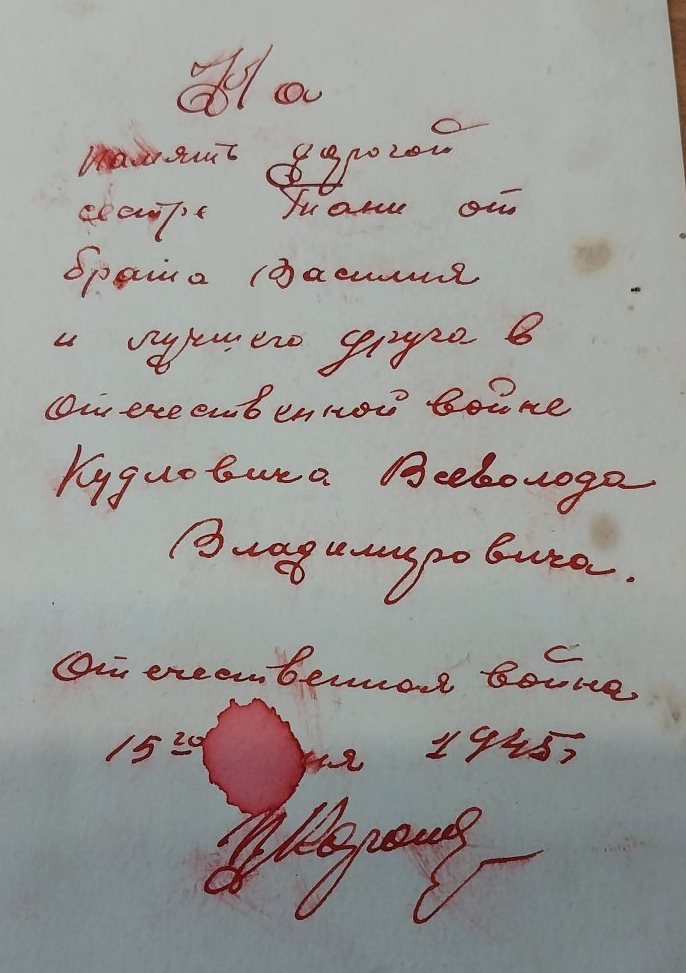 На
память дорогой
сестре Тани от
брата Василия
и лучшего друга в
Отечественной войне
Кудловича Всеволода
Владимировича.
Отечественная война
15го 1945г